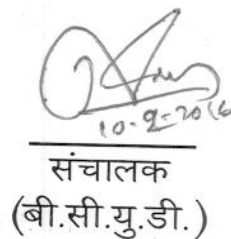 10-2-2016
संचालक
(बी.सी.यु.डी.)